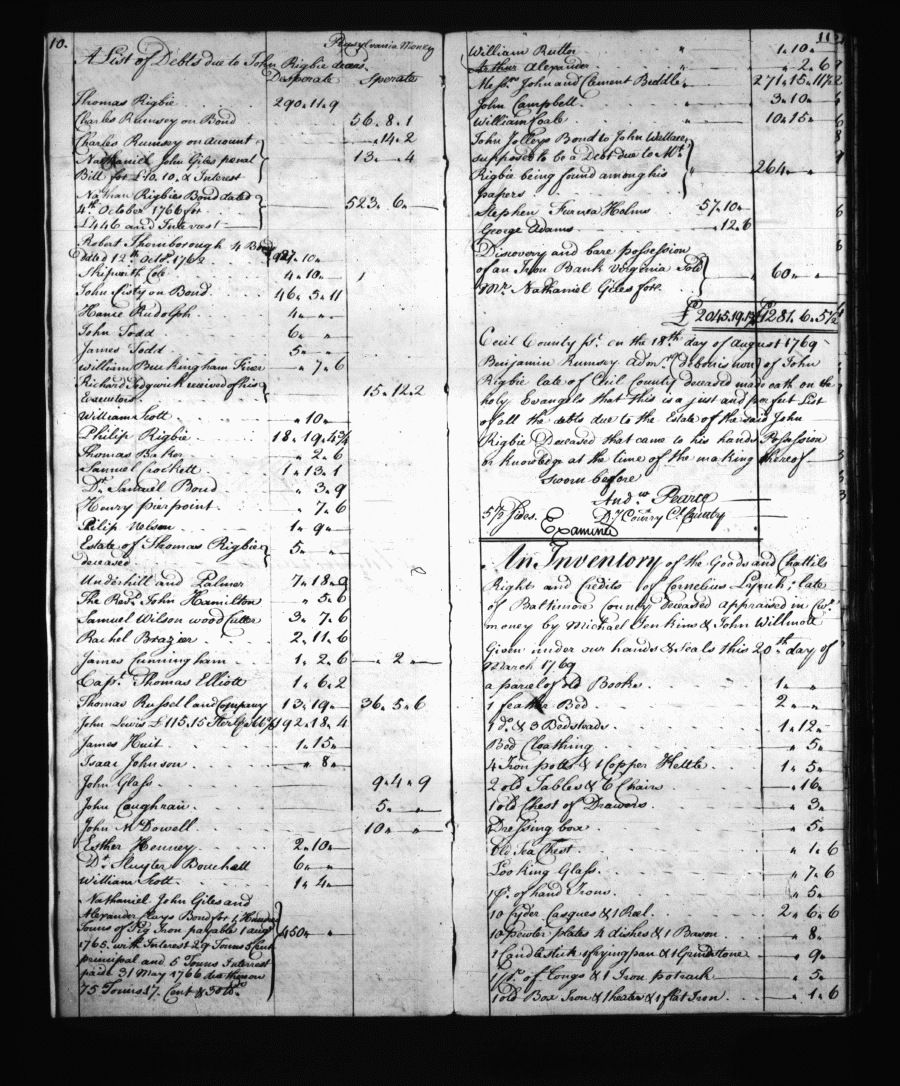 10.
Pensylvania Money
A List of Debts due to John Rigbie deced.
Desperate Sperate
Thomas Rigbie 290.11.9
Charles Rumsey on Bond 56.8.1
Charles Rumsey on account ".14.2
Nathaniel John Giles penal 13.".4
Bill for £10.10. & Interest
Nathan Rigbies Bond dated
4th. October 1766 for 523.6."
£446 and Interest
Robert Thornborough 4 Bonds
Dated 12th Octr. 1762 .10."
Skipwith Cole 4.10."
John Listy on Bond 46.5.11
Hance Rudolph 4."."
John Todd 6."."
James Todd 5."."
William Buckingham Fiver ".7.6
Richard Sedgwick received of his 15.12.2
Executors
William Scott ".10."
Philip Rigbie 18.19.4¾
Thomas Baker ".2.6
Samuel Crockett 1.13.1
Dr. Samuel Bond ".3.9
Henry pierpoint ".7.6
Philip Nelson 1.9."
Estate of Thomas Rigbie 5."."
deceased
Underhill and Palmer 7.18.9
The Revd. John Hamilton ".5.6
Samuel Wilson wood Cutter 3.7.6
Rachel Brazier 2.11.6
James Cunningham 1.2.6 ".2."
Capt. Thomas Elliott 1.6.2
Thomas Russel and Company 13.19." 36.5.6
John Lewis £115.15 Sterlg. 192.18.4
James Huit 1.15."
Isaac Johnson ".8."
John Glass 9.4.9
John Caughran 5."."
John McDowell 10."."
Esther Henney 2.10."
Dr. Sluyter Bouchell 6."."
William Scott 1.4."
Nathaniel John Giles and
Alexander Clays Bond for
Touns of Pig Iron payable 1 augt. 450."."
1765. with Interest 29 Touns 5 Cent
principal and 5 Touns Interest
paid 31 May 1766 due thereon
75 Touns 17. Cent &
11
William Rutter " 1.10."
Arthur Alexander " ".2.6
Messrs. John and Clement Biddle " 271.15.11½
John Campbell " 3.10."
William Coale " 10.15."
John Jolleys Bond to John Wallace
supposed to be a Debt due to Mr.
Rigbie being found among his " 264."."
papers
Stephen Fransa Holms 57.10."
George Adams ".12.6
Discovery and bare possession
of an Iron Bank Virginia Sold 60."."
Mr. Nathaniel Giles for
£2045.19. £1281.6.5½
Cecil County Sct. on the 18th day of August 1769
Benjamin Rumsey Admr. (debonis non) of John
Rigbie late of Cecil County Deceased made oath on the
holy Evangels that this is a just and perfect List
of all the debts due to the Estate of the said John
Rigbie Deceased that came to his hands Possession
or knowledge at the time of the making thereof
Sworn before
Andw. Pearce
Dy Comry Cl. County
Sides. Examined
An Inventory of the Goods and Chattels
Right and Credits of Cornelius Lynch, late
of Baltimore County Deceased appraised in
money by Michael Jenkins & John Willmott
Given under our hands & Seals this 20th day of
March 1769
a parcel of old Books 1."."
1 feather Bed 2."."
1 do. & 3 Bedsteads 1.12."
Bed Cloathing ".5."
4 Iron potts & 1 Copper Kettle 1.5."
2 old Tables & 6 Chairs ".16."
1 old Chest of Drawers ".3."
Dressing box ".5."
Old Sea Chest ".1.6
Looking Glass ".7.6
1 pr. of hand Irons ".5."
10 Cyder Casques & 1 Reel 2.6.6
10 pewter plates 4 dishes & 1 Bason ".8."
1 Candlestick 1 frying pan & 1 Grindstone ".9."
1 pr. of Tongs & 1 Iron potrack ".5."
1 old Box Iron & 1 heater & 1 flat Iron ".1.6